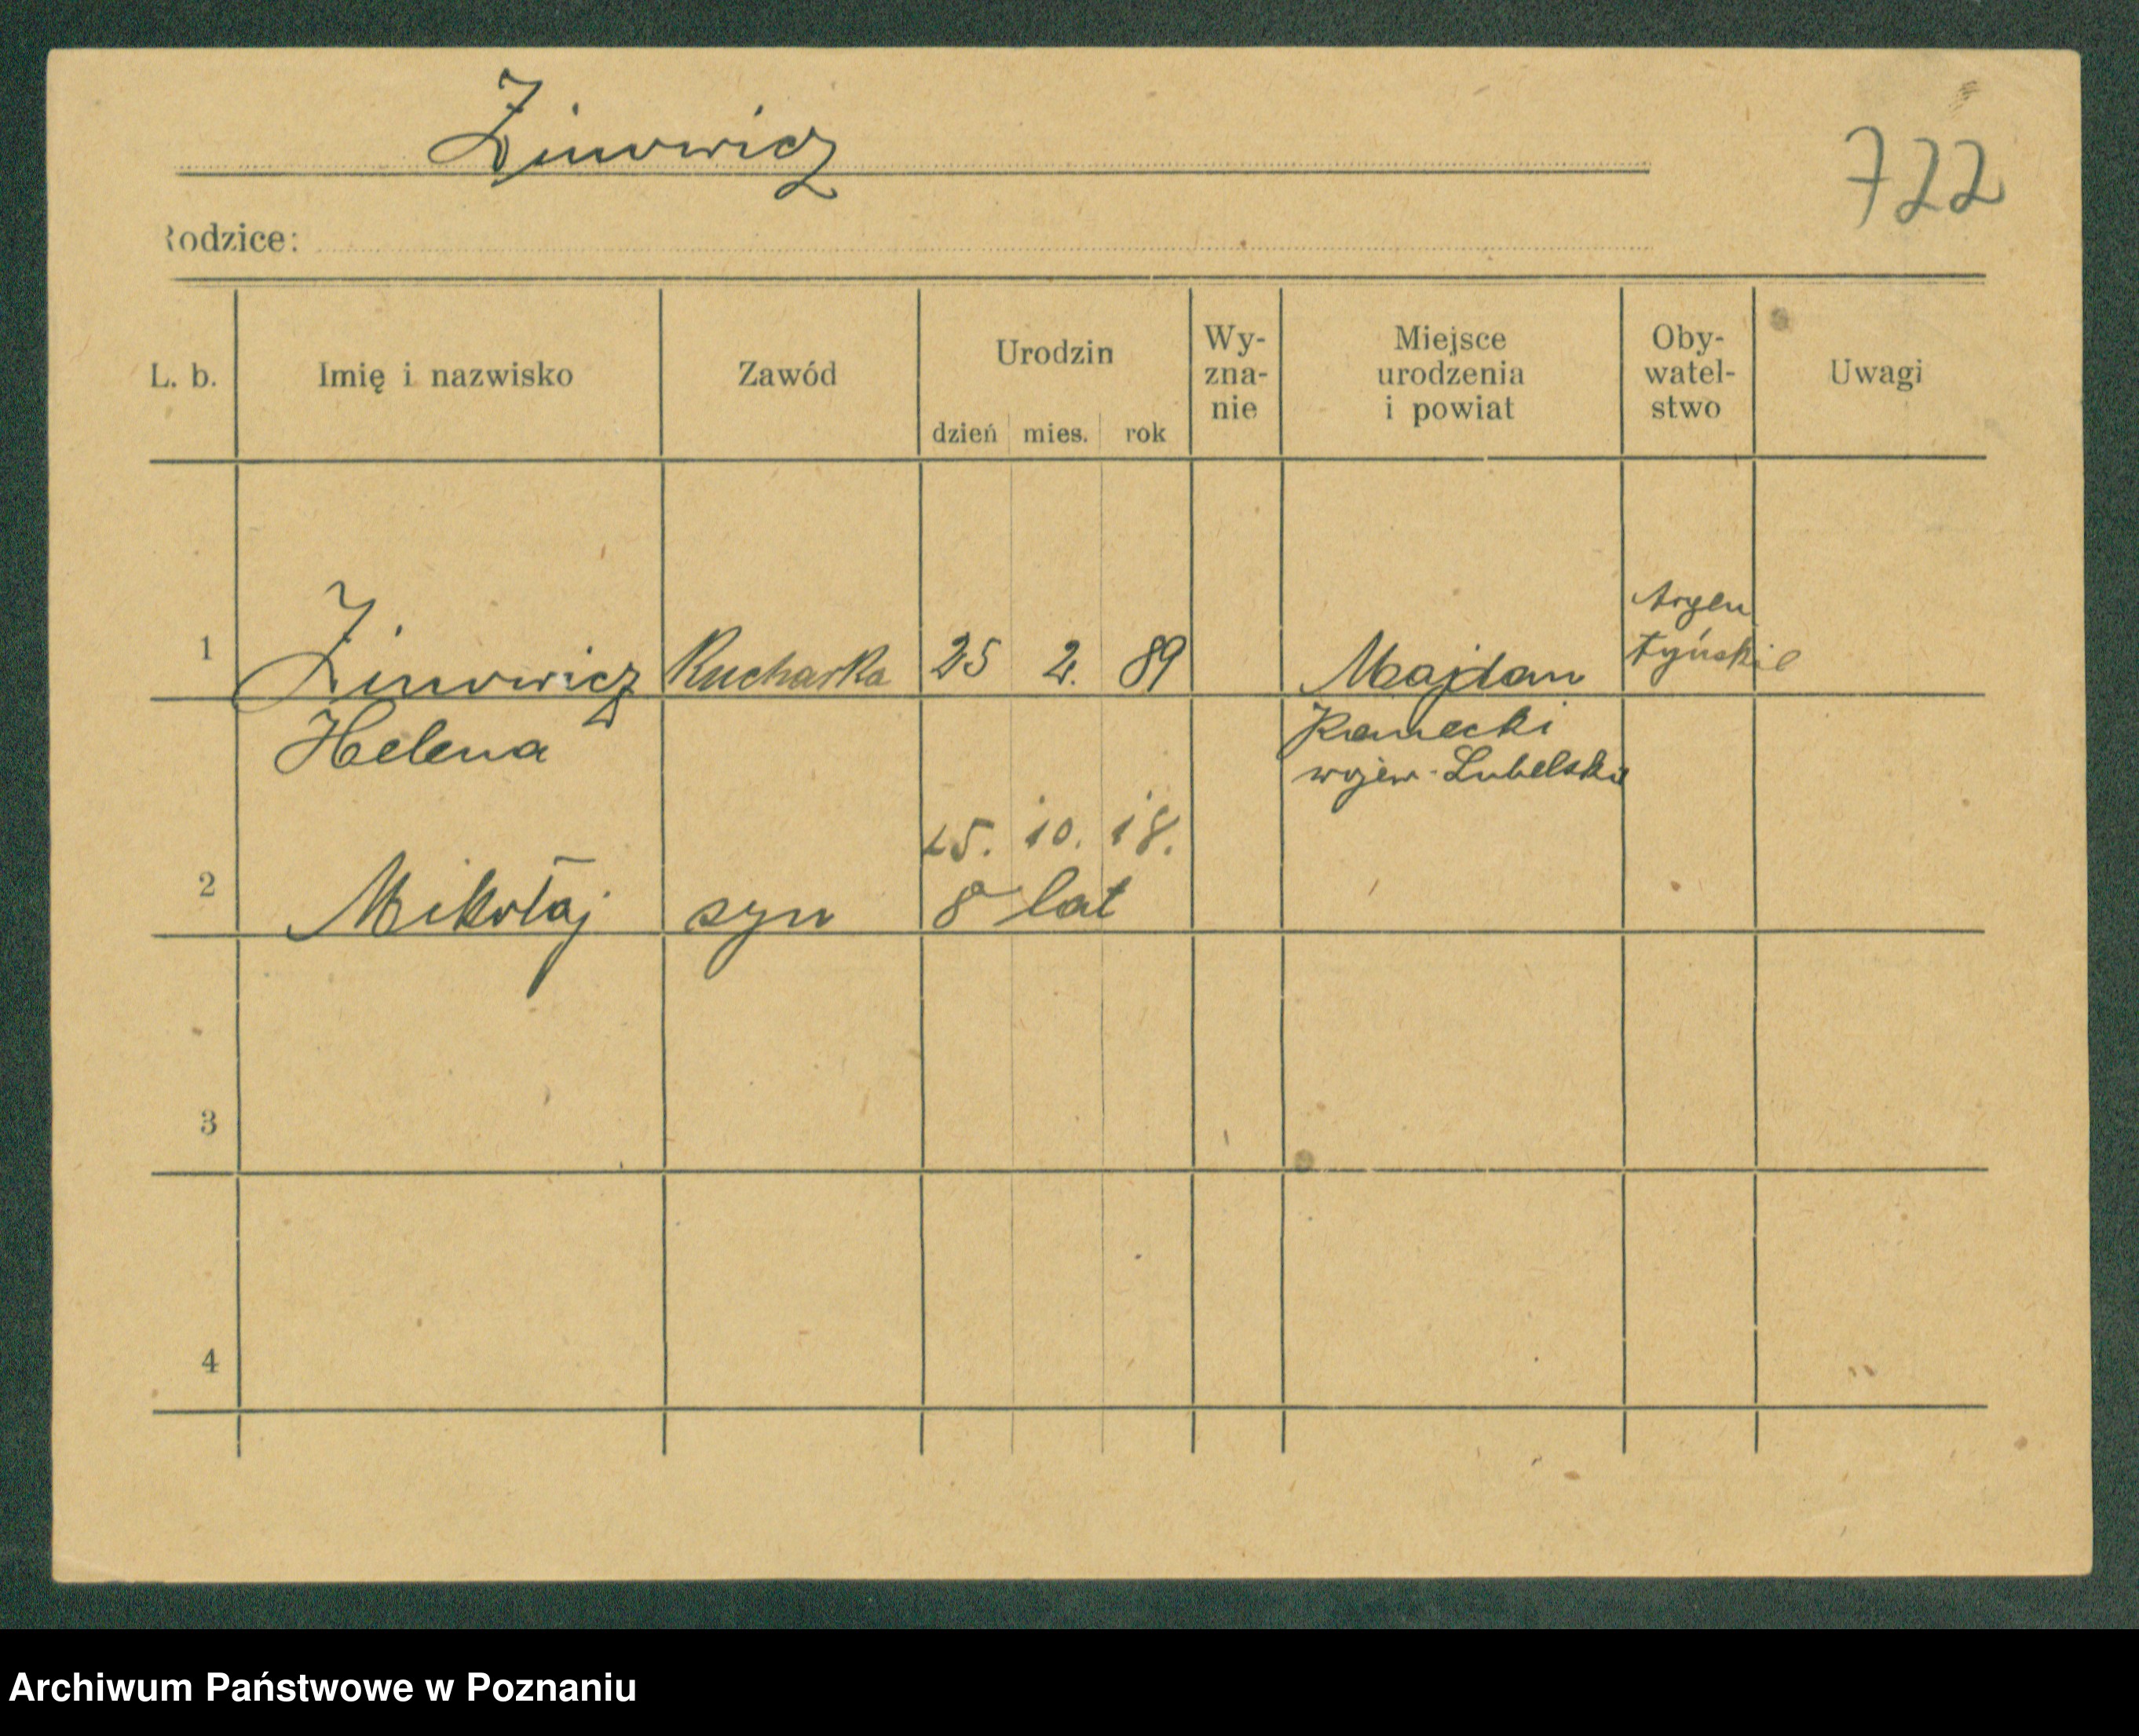 Zinowicz
722
Rodzice:
L. b.
Imię i nazwisko
Zawód
Urodzin
dzień mies. rok
Wy-
zna-
nie
Miejsce
urodzenia
i powiat
Oby-
watel-
stwo
Uwagi
1
Zinowicz
Helena
Kucharka
25 2. 89
Majdan
wojew. Lubelskie
Argen
tyńskie
2
Mikołaj
syn
15. 10. 18.
8 lat
3
4
Archiwum Państwowe w Poznaniu